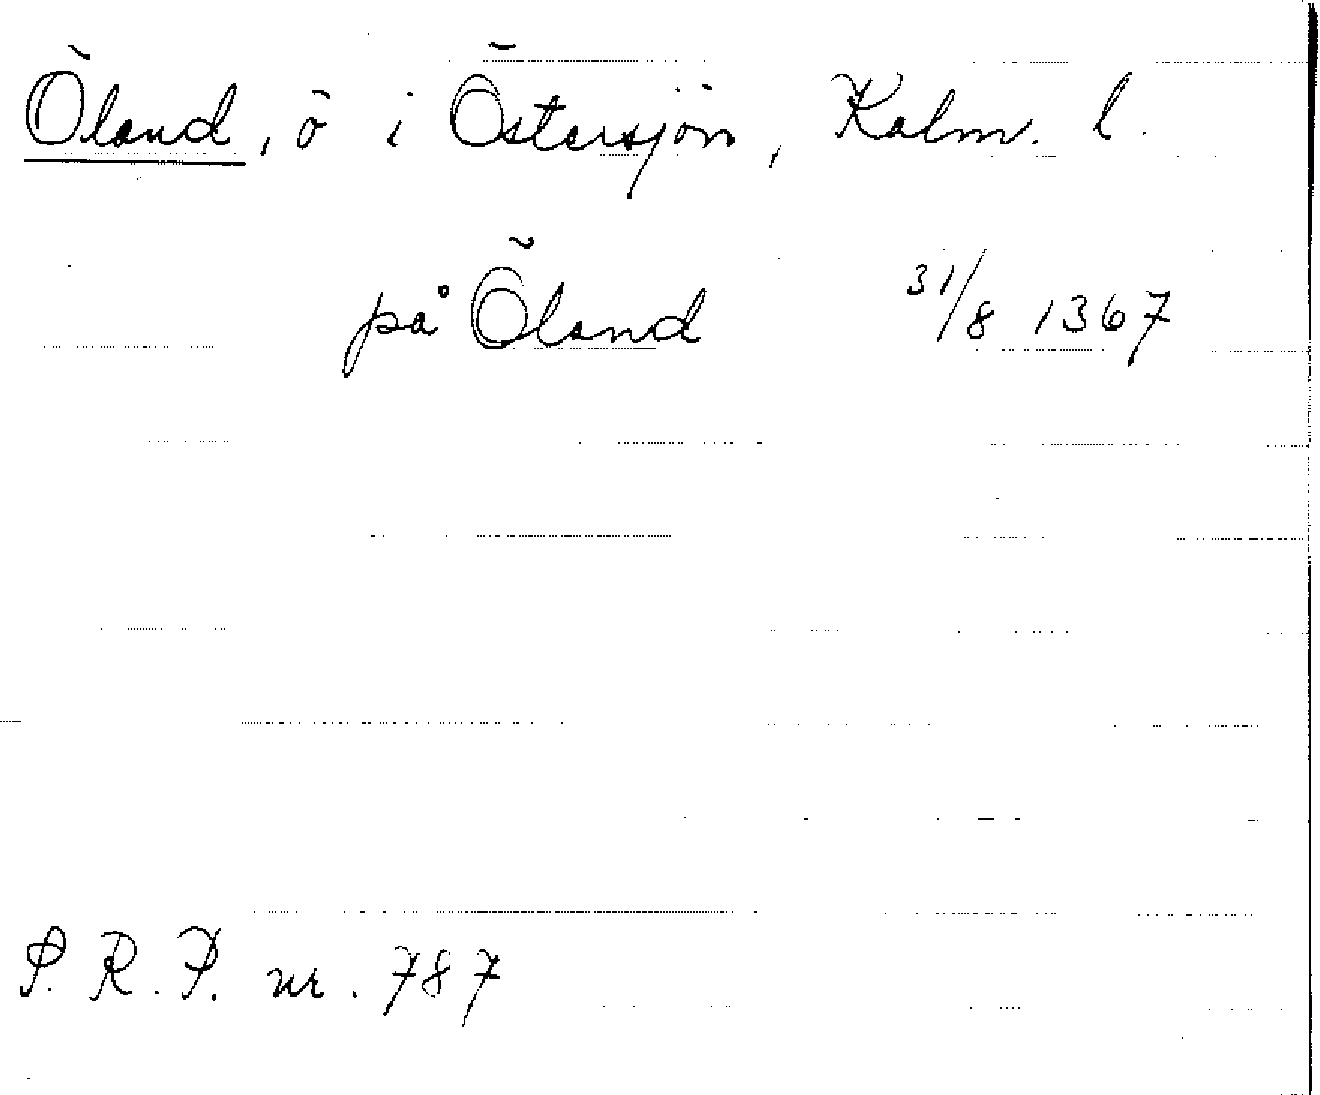 Öland, ö i Östersjön, Kalm. l.
på Öland 31/8 1367
P. R. P. nr. 787